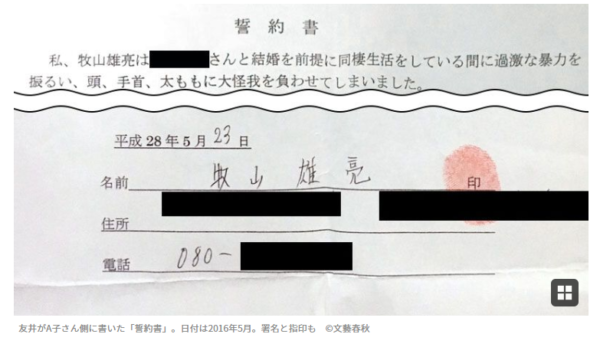 誓約書
私、牧山雄亮は さんと結婚を前提に同棲生活をしている間に過激な暴力を
振るい、頭、手首、太ももに大怪我を負わせてしまいました。
平成28年5月23日
名前 牧山雄亮 印
住所
電話 080-
友井がA子さん側に書いた「誓約書」。日付は2016年5月。署名と指印も ©文藝春秋